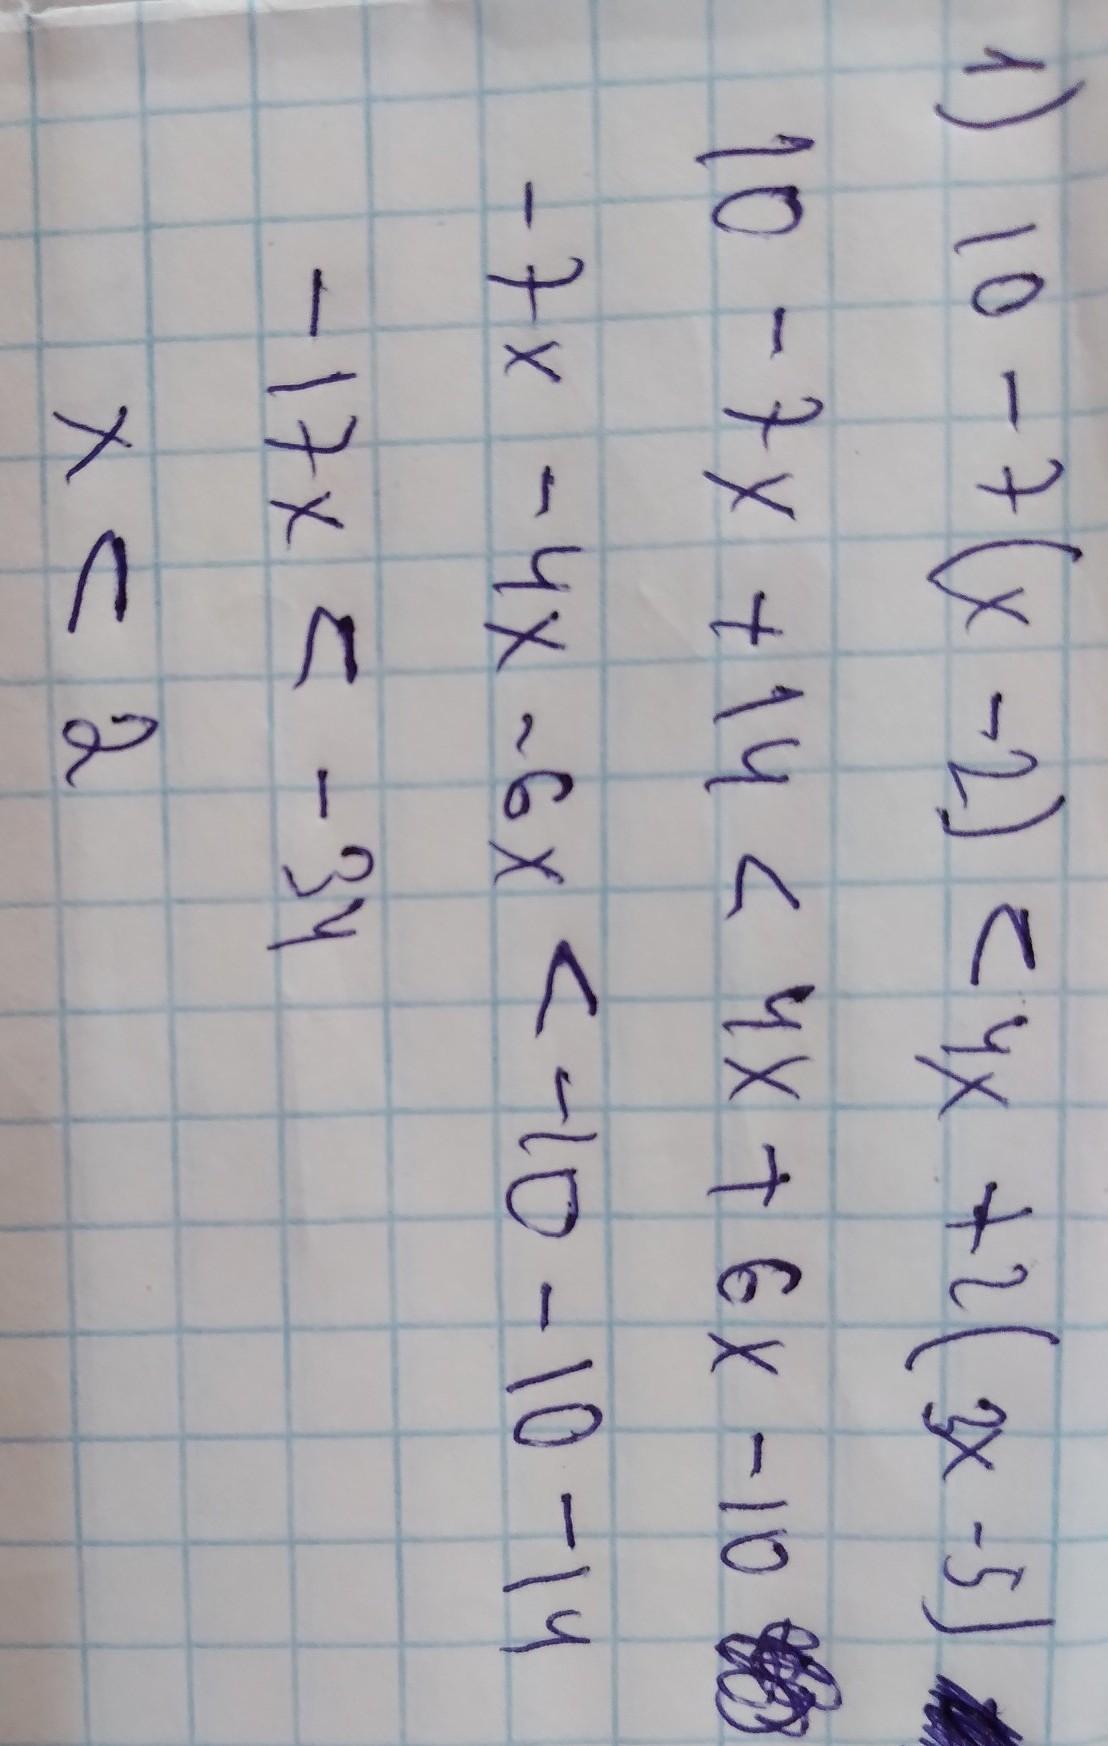 1) 10 - 7(x - 2) < 4x + 2(3x - 5)
10 - 7x + 14 < 4x + 6x - 10
- 7x - 4x - 6x < -10 - 10 - 14
- 17x < - 34
x < 2